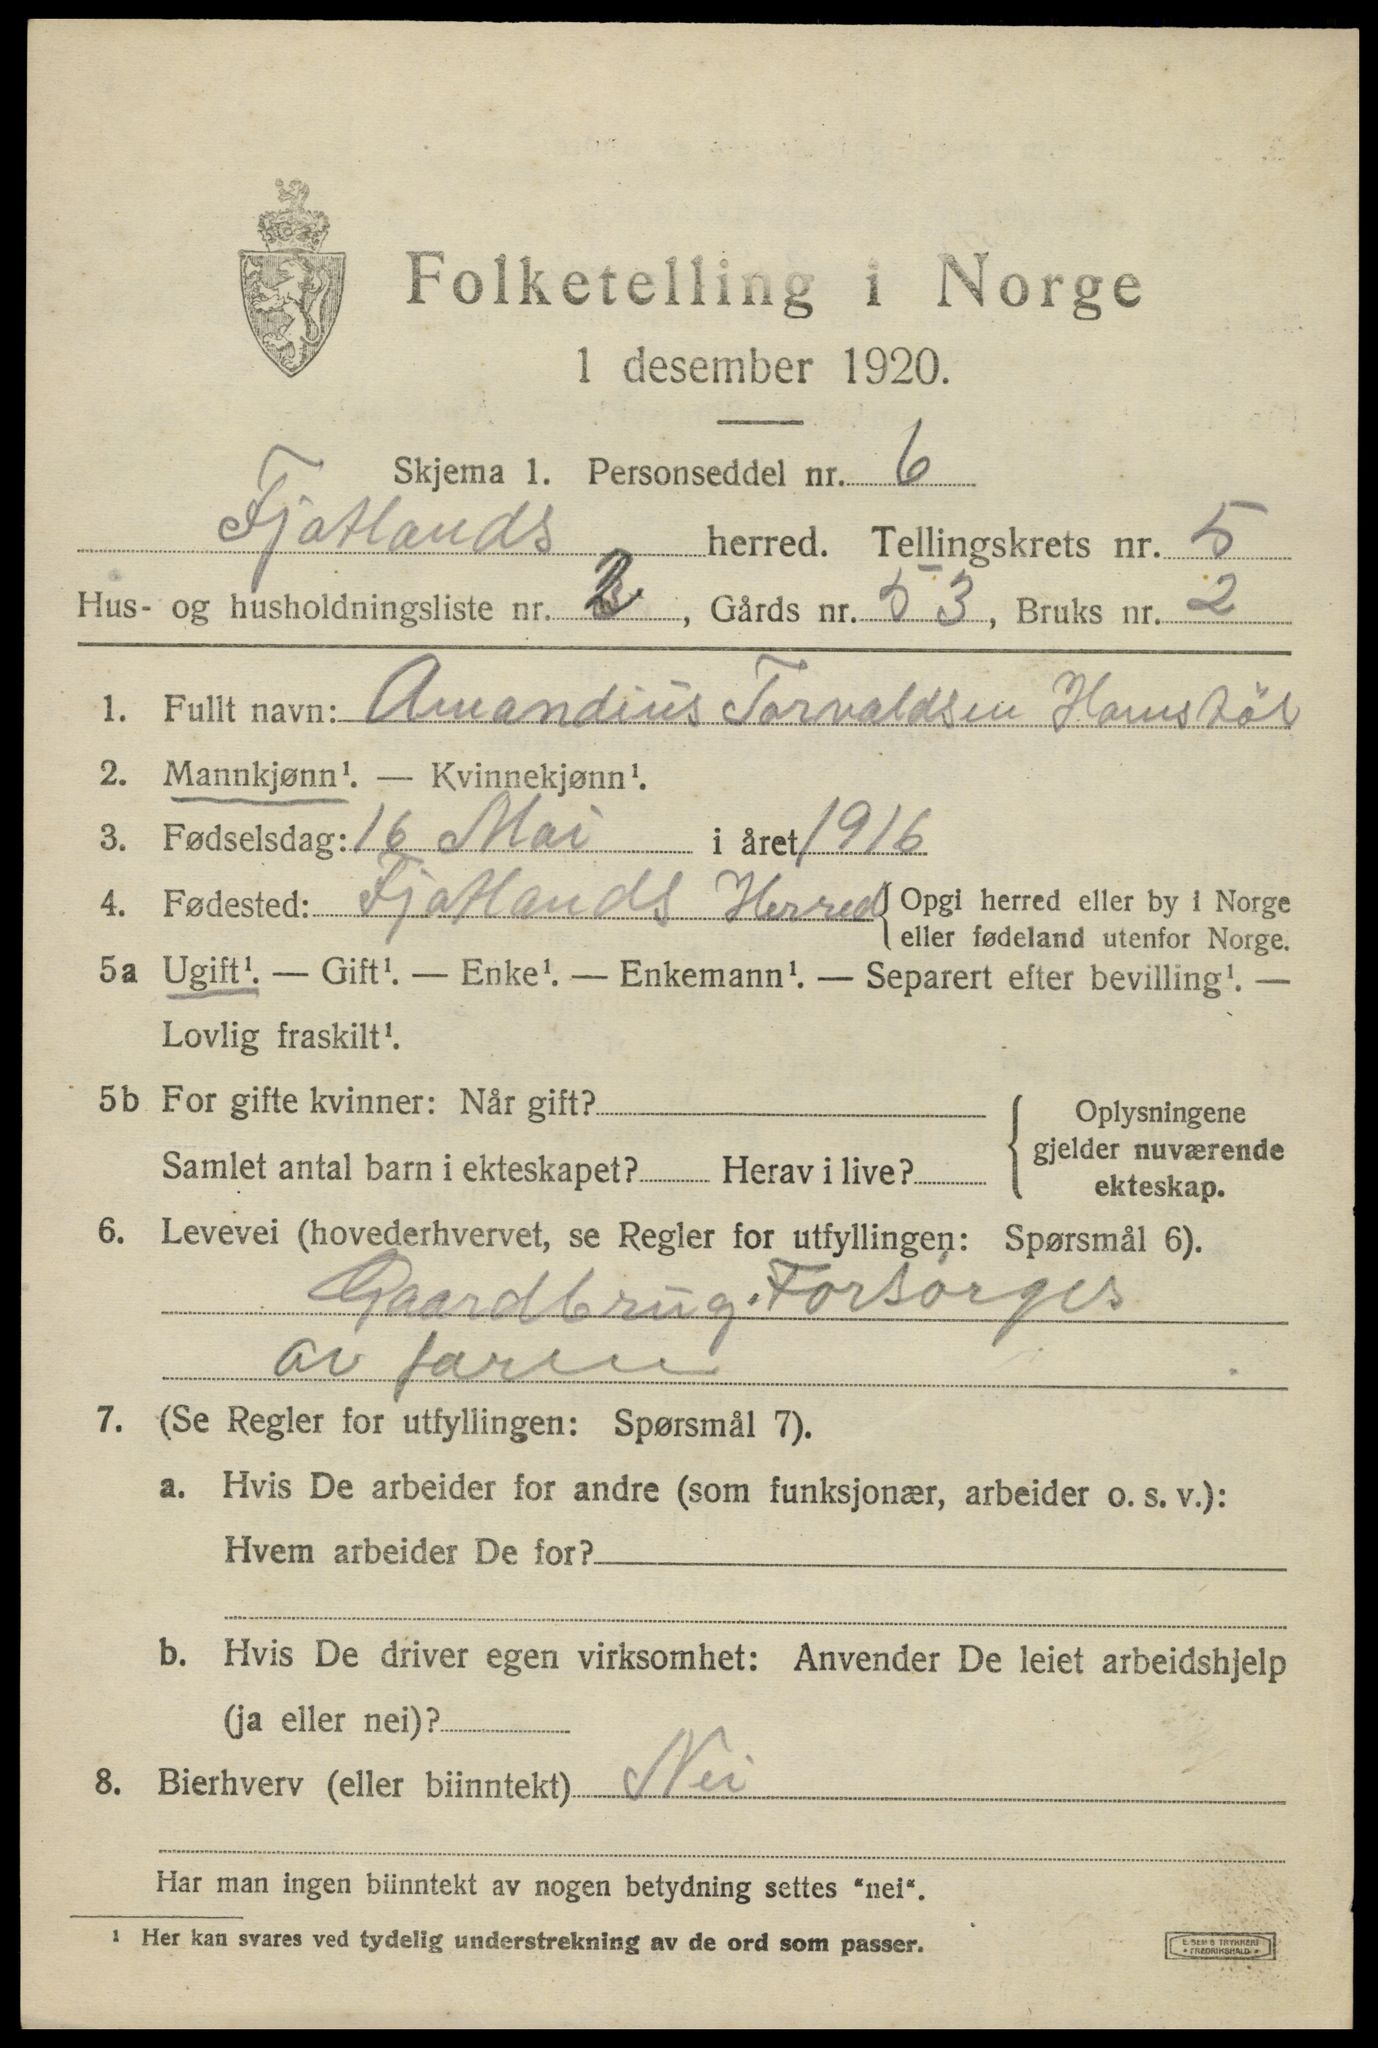 Folketelling i Norge
1 desember 1920.
Skjema 1. Personseddel nr. 6
Fjotlands herred. Tellingskrets nr. 5
Hus- og husholdningsliste nr. 2, Gårds nr. 53, Bruks nr. 2
1. Fullt navn: Amandius Torvaldsen Hamstöl
2. Mannkjønn¹. — Kvinnekjønn¹.
3. Fødselsdag: 16 Mai i året 1916
4. Fødested: Fjotlands Herred { Opgi herred eller by i Norge
eller fødeland utenfor Norge.
5a Ugift¹. — Gift¹. — Enke¹. — Enkemann¹. — Separert efter bevilling¹. —
Lovlig fraskilt¹.
5b For gifte kvinner: Når gift?
Samlet antal barn i ekteskapet? Herav i live?
Oplysningene
gjelder nuværende
ekteskap.
6. Levevei (hovederhvervet, se Regler for utfyllingen: Spørsmål 6).
Gaardbrug. Forsørges
av faren
7. (Se Regler for utfyllingen: Spørsmål 7).
a. Hvis De arbeider for andre (som funksjonær, arbeider o. s. v.):
Hvem arbeider De for?
b. Hvis De driver egen virksomhet: Anvender De leiet arbeidshjelp
(ja eller nei)?
8. Bierhverv (eller biinntekt) Nei
Har man ingen biinntekt av nogen betydning settes "nei".
¹ Her kan svares ved tydelig understrekning av de ord som passer.
E. SEM'S TRYKKERI
FREDRIKSHALD